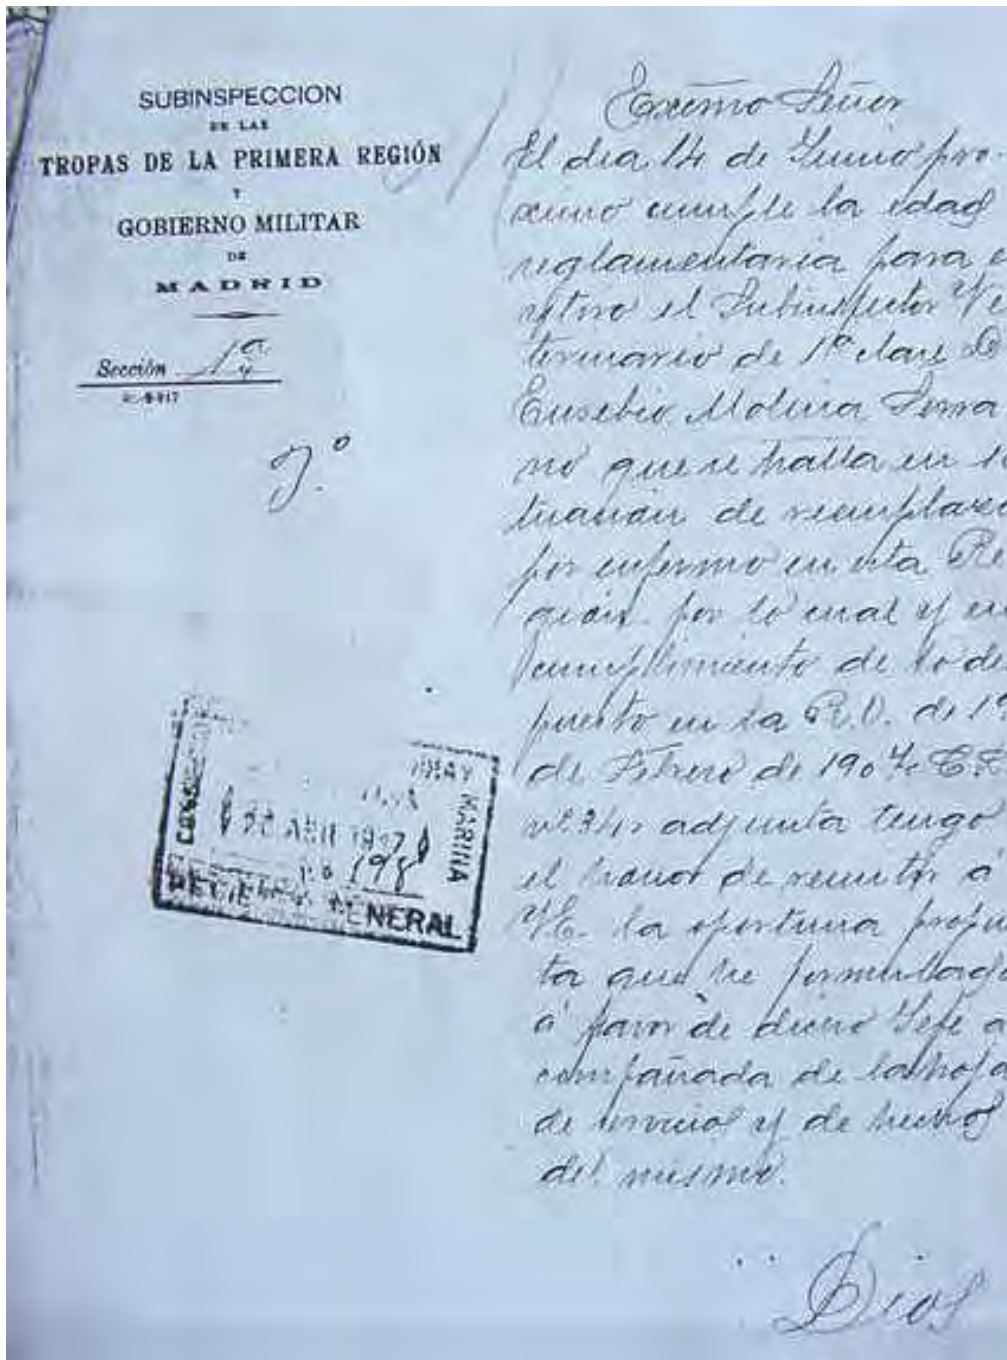 SUBINSPECCION
DE LAS
TROPAS DE LA PRIMERA REGIÓN
Y
GOBIERNO MILITAR
DE
MADRID
Sección 1ª
Excmo Señor
El dia 14 de Junio pro-
ximo cumple la edad
reglamentaria para e
retiro el Subinspector Ve
terinario de 1ª clase D
Eusebio Molina Serra
no que se halla en si
tuación de reemplazo
por enfermo en esta Re
gión por lo cual y en
cumplimiento de lo de
puesto en la R.O. de 1
de Febrero de 190 C.L
nº 34, adjunta tengo
el honor de remitir á
V.E. la oportuna propu
ta que he formulado
á favor de dicho Jefe a
compañada de la hoja
de servicios y de hechos
del mismo.
Dios
MARINA
ABR
198
GENERAL